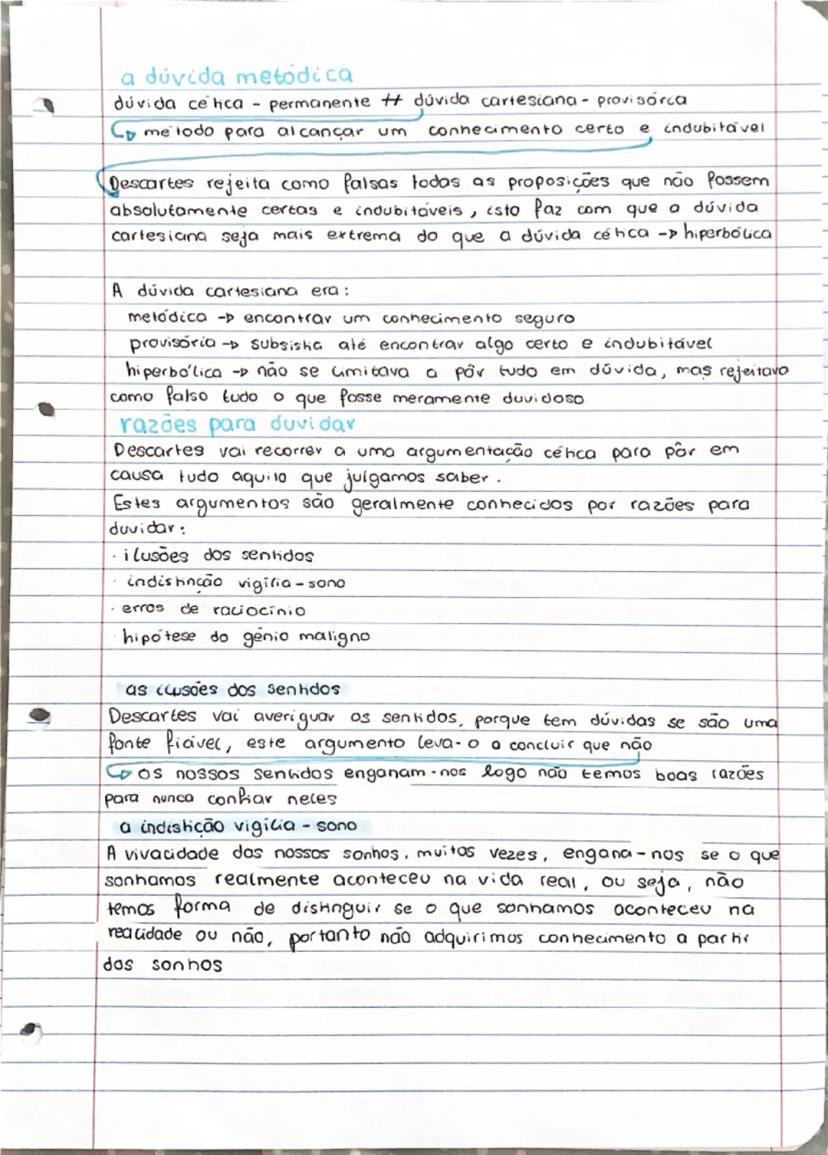 a dúvida metódica
dúvida cética - permanente ≠ dúvida cartesiana - provisória
↳ método para alcançar um conhecimento certo e indubitável
Descartes rejeita como falsas todas as proposições que não fossem
absolutamente certas e indubitáveis, isto faz com que a dúvida
cartesiana seja mais extrema do que a dúvida cética -> hiperbólica
A dúvida cartesiana era:
metódica -> encontrar um conhecimento seguro
provisória -> subsistia até encontrar algo certo e indubitável
hiperbólica -> não se limitava a pôr tudo em dúvida, mas rejeitava
como falso tudo o que fosse meramente duvidoso
razões para duvidar
Descartes vai recorrer a uma argumentação cética para pôr em
causa tudo aquilo que julgamos saber.
Estes argumentos são geralmente conhecidos por razões para
duvidar:
· ilusões dos sentidos
· indistinção vigília - sono
· erros de raciocínio
· hipótese do génio maligno
as ilusões dos sentidos
Descartes vai averiguar os sentidos, porque tem dúvidas se são uma
fonte fiável, este argumento leva-o a concluir que não
↳ os nossos sentidos enganam-nos logo não temos boas razões
para nunca confiar neles
a indistição vigília - sono
A vivacidade dos nossos sonhos, muitas vezes, engana-nos se o que
sonhamos realmente aconteceu na vida real, ou seja, não
temos forma de distinguir se o que sonhamos aconteceu na
realidade ou não, portanto não adquirimos conhecimento a partir
dos sonhos